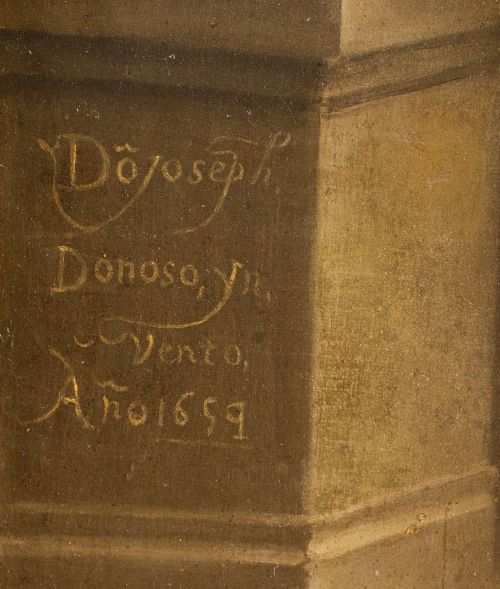 Dô Joseph
Donoso, yn,
vento,
Año 1659